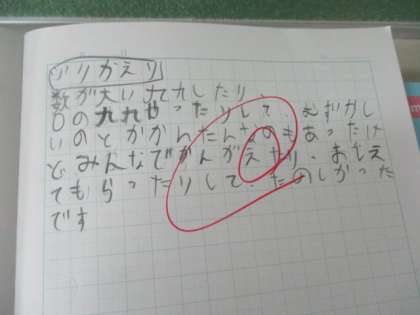 ふりかえり
数が大い九九したり、
0の九九やったりして、むずかし
いのとかかんたんなのもあったけ
どみんなでかんがえたり、おしえ
てもらったりして、たのしかった
です